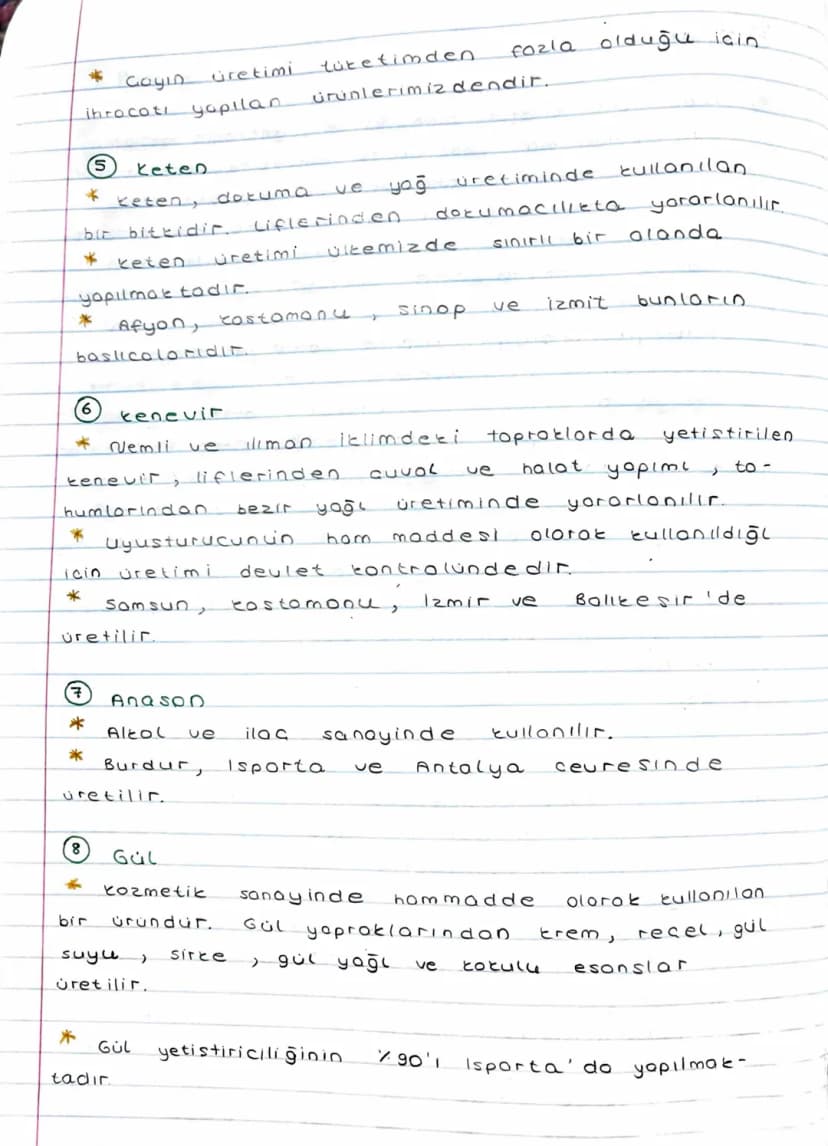 * Çayın üretimi tüketimden fazla olduğu için
ihracatı yapılan ürünlerimizdendir.
⑤ Keten
* Keten, dokuma ve yağ üretiminde kullanılan
bir bitkidir. Liflerinden dokumacılıkta yararlanılır.
* Keten üretimi ülkemizde sınırlı bir alanda
yapılmaktadır.
* Afyon, Kastamonu, Sinop ve İzmit bunların
baslıcalarıdır.
⑥ Kenevir
* Nemli ve ılıman iklimdeki topraklarda yetistirilen
kenevir, liflerinden cuval ve halat yapımı, to-
humlarından bezir yağı üretiminde yararlanılır.
* Uyusturucunun ham maddesi olarak kullanıldığı
icin üretimi devlet kontrolündedir.
* Samsun, Kastamonu, Izmir ve Balıkesir'de
üretilir.
⑦ Anason
* Alkol ve ilac sanayinde kullanılır.
* Burdur, Isparta ve Antalya cevresinde
üretilir.
⑧ Gül
* Kozmetik sanayinde hammadde olarak kullanılan
bir üründür. Gül yapraklarından krem, recel, gül
suyu, sirke, gül yağı ve kokulu esanslar
üretilir.
* Gül yetistiriciliğinin %90'ı Isparta'da yapılmak-
tadır